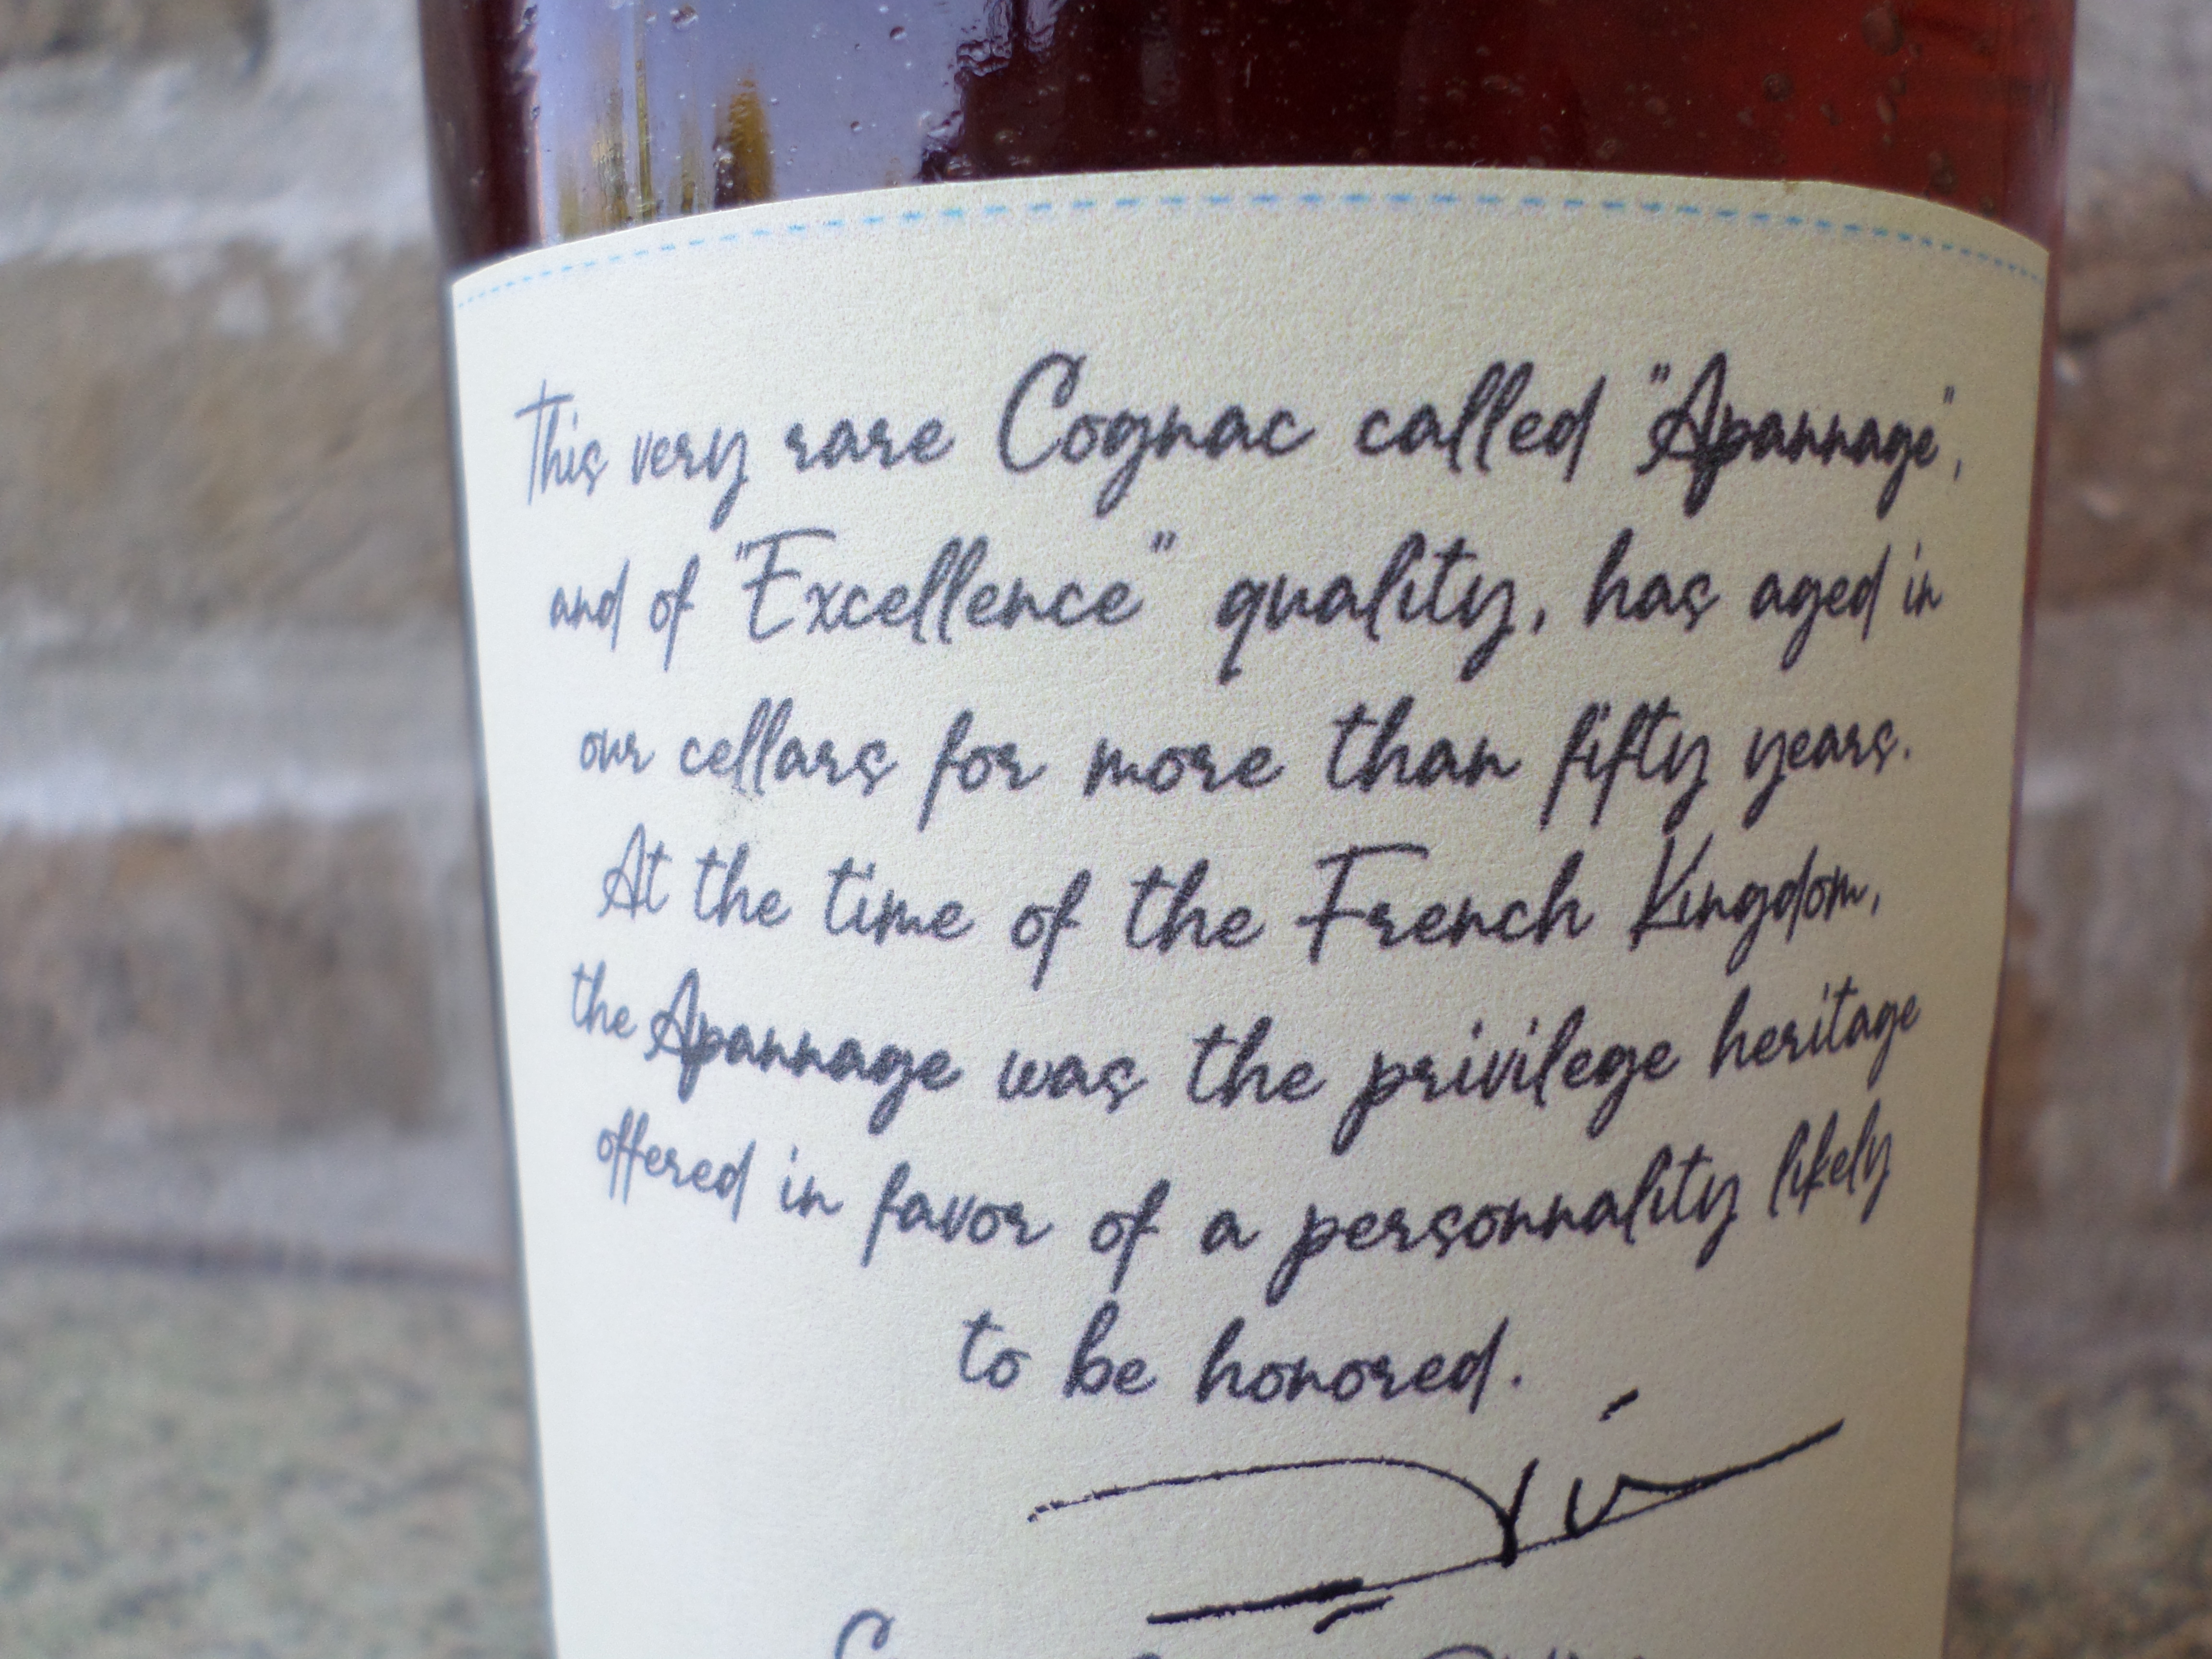 This very rare Cognac called "Apannage",
and of "Excellence" quality, has aged in
our cellars for more than fifty years.
At the time of the French Kingdom,
the Apannage was the privilege heritage
offered in favor of a personnality likely
to be honored.